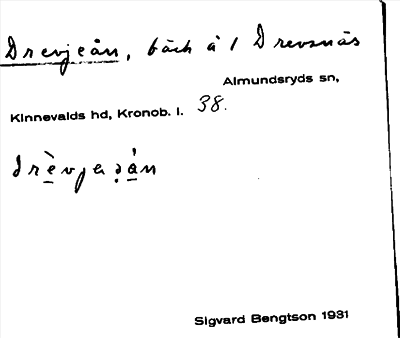 Drevjeån, bäck å 1 Drevsnäs
Almundsryds sn,
Kinnevalds hd, Kronob. l. 38.
Sigvard Bengtson 1931